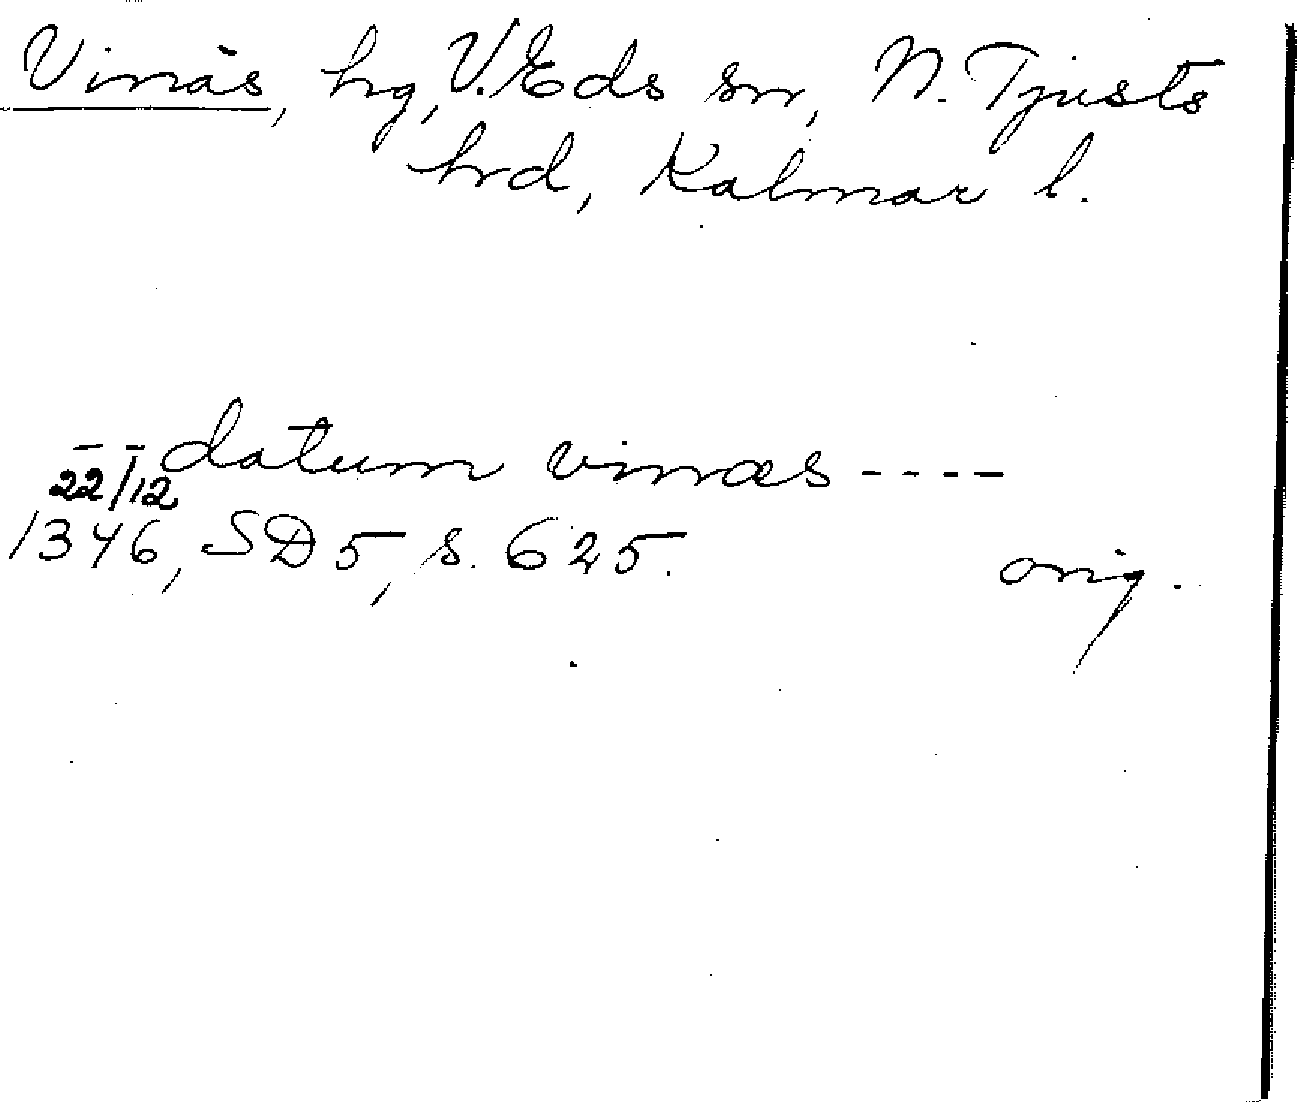 Vinäs, hg, V. Eds sn, N. Tjusts
hrd, Kalmar l.
– – datum vinæs ----
22/12
1346, SD 5, s. 625.
orig.